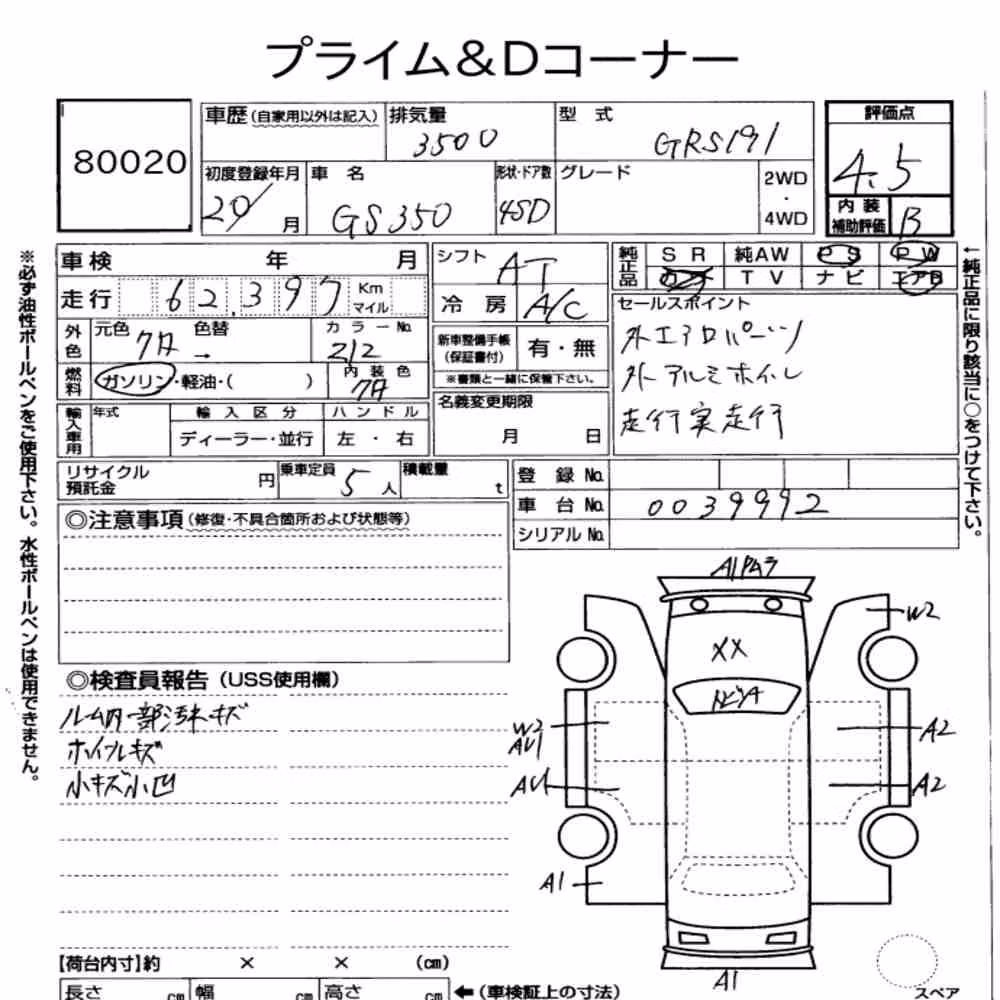 プライム&Dコーナー
80020
車歴(自家用以外は記入)
排気量 3500
型式 GRS191
評価点 4.5
初度登録年月 20/ 月
車名 GS350
形状・ドア数 4SD
グレード
2WD・4WD
内装補助評価 B
※必ず油性ボールペンをご使用下さい。水性ボールペンは使用できません。
車検 年 月
シフト AT
純正品 SR 純AW PS PW
TV ナビ エアB
走行 62,397 Km マイル
冷房 A/C
セールスポイント
外エアロパーツ
外アルミホイル
走行実走行
外色 元色 クロ 色替 → カラーNo. 212
新車整備手帳(保証書付) 有・無
※書類と一緒に保管下さい。
燃料 ガソリン・軽油・( ) 内装色 クロ
名義変更期限 月 日
輸入車用 年式 輸入区分 ハンドル
ディーラー・並行 左・右
←純正品に限り該当に○をつけて下さい。
リサイクル預託金 円 乗車定員 5人 積載量 t
登録No.
車台No. 0039992
シリアルNo.
◎注意事項(修復・不具合箇所および状態等)
◎検査員報告(USS使用欄)
ルーム内一部汚れキズ
ホイルキズ
小キズ小凹
W2
XX
トビツA
W2
AU1
A2
AU1
A2
A1
A1
【荷台内寸】約 × × (cm)
長さ cm 幅 cm 高さ cm ←(車検証上の寸法)
スペア